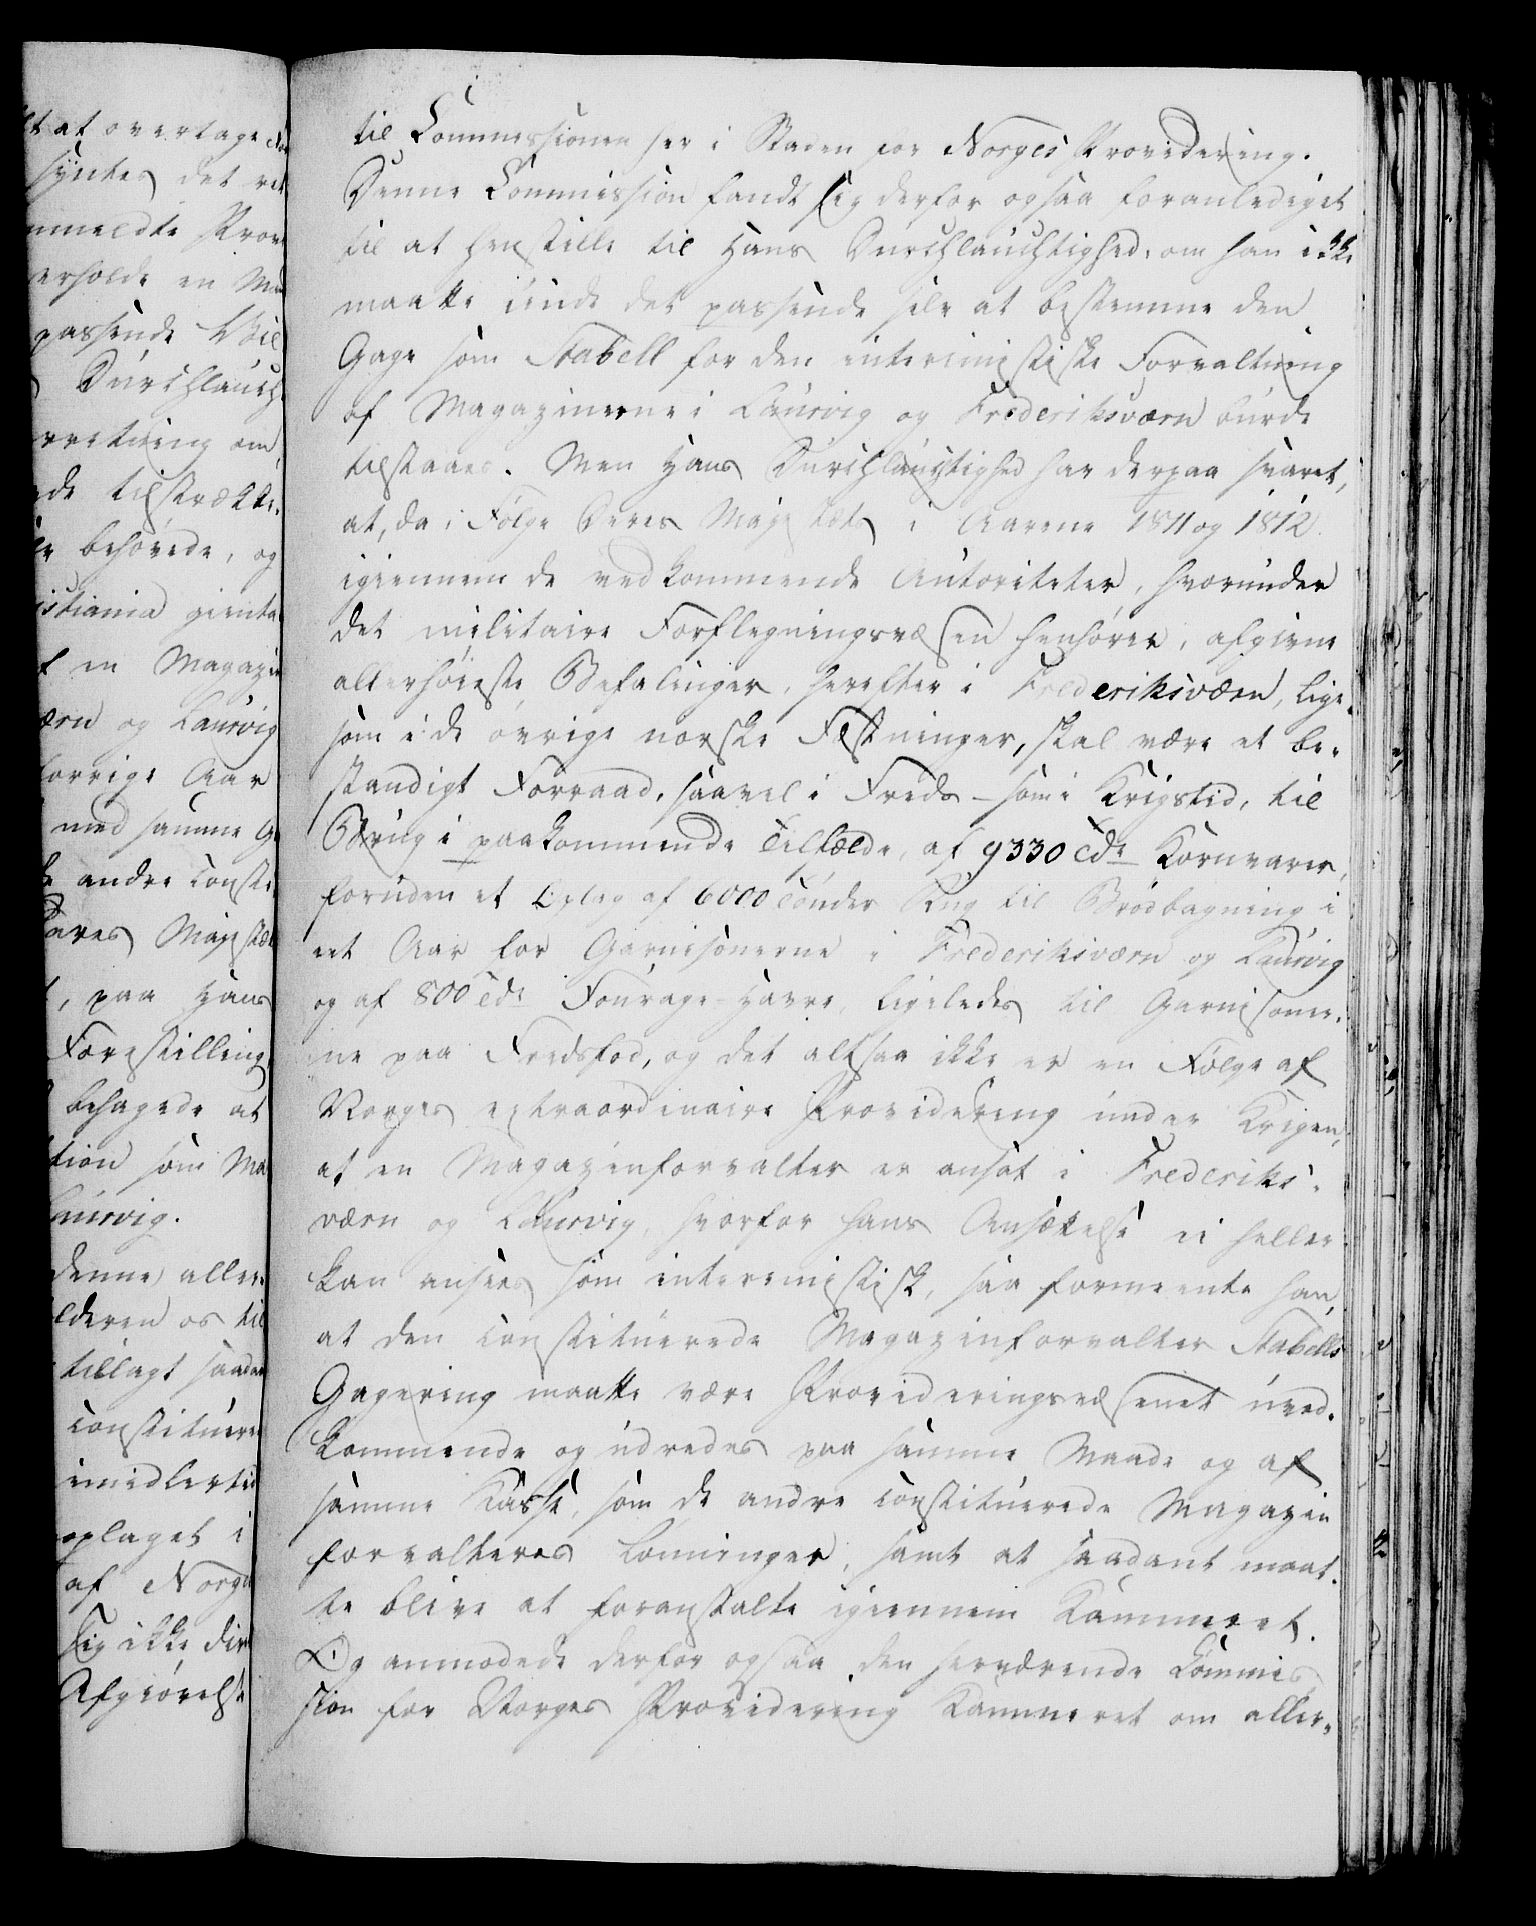 t at overtage
syntes det
nmeldte Prov
erholde en
passende
Durchlauch
verretning om
de tilstrække-
behøvede, og
istiania gienta
en Magazin
ærn og Laurvig
forrige Aar
med samme
andre consti
Deres Majestæt
, paa Hans
Forestilling
behagede at
tion som Ma
Laurvig.
denne aller-
til
tillagt saadan
constituere
imidlertid
oplaget i
af Norges
sig ikke dire
Afgiørelse
til Commissionen her i Staden for Norges Providering.
Denne Commission fandt sig derfor ogsaa foranlediget
til at henstille til Hans Durchlauchtighed, om han ikke
maatte finde det passende selv at bestemme den
Gage som Stabell for den interimistiske Forvaltning
af Magazinerne i Laurvig og Frederiksværn burde
tilstaaes. Men Hans Durchlauchtighed har derpaa svaret,
at, da i Følge Deres Majestæts i Aarene 1811 og 1812
igiennem de vedkommende Autoriteter, hvorunder
det militaire Forflegningsvæsen henhører, afgivne
allerhøieste Befalinger, herefter i Frederiksværn, lige-
som i de øvrige norske Fæstninger, skal være et be-
standigt Forraad, saavel i Freds- som i Krigstid, til
Brug i paakommende Tilfælde, af 9330 Tdr Kornvarer,
foruden et Oplag af 6000 Tønder Rug til Brødbagning i
eet Aar for Garnisonerne i Frederiksværn og Laurvig
og af 800 Tdr Fourage-Havre, ligeledes til Garnisoner-
ne paa Fredsfod, og det altsaa ikke er en Følge af
Norges extraordinaire Providering under Krigen,
at en Magazinforvalter er ansat i Frederiks-
værn og Laurvig, hvorfor hans Ansættelse ei heller
kan ansees som interimistisk, saa formeente han,
at den constituerede Magazinforvalter Stabells
Gagering maatte være Provideringsvæsenet uved-
kommende og udredes paa samme Maade og af
samme Kasse, som de andre constituerede Magazin
forvalteres Lønninger, samt at saadant maat-
te blive at foranstalte igiennem Kammeret.
Og anmodede derfor ogsaa den herværende Commis
sion for Norges Providering Kammeret om aller-